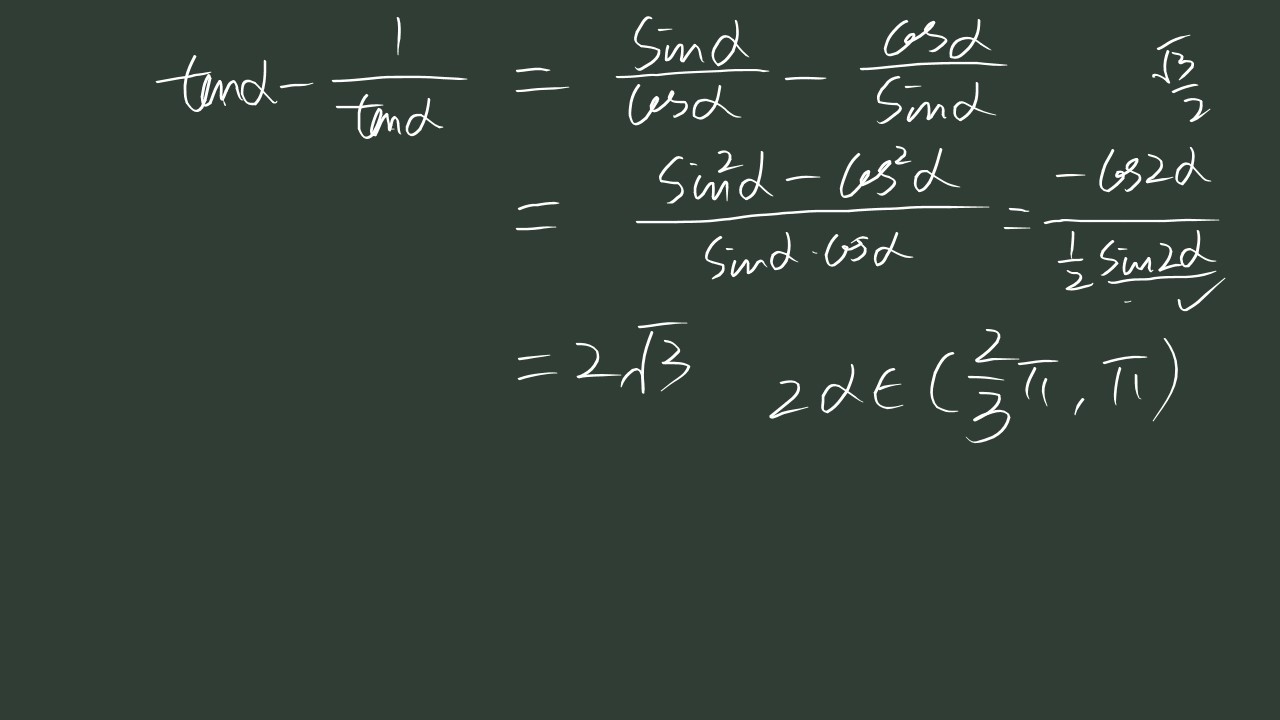 tanα - 1/tanα = sinα/cosα - cosα/sinα √3/2
= (sin²α - cos²α)/(sinα · cosα) = (-cos2α)/(1/2 sin2α) ✓
= 2√3 2α ∈ (2/3 π, π)